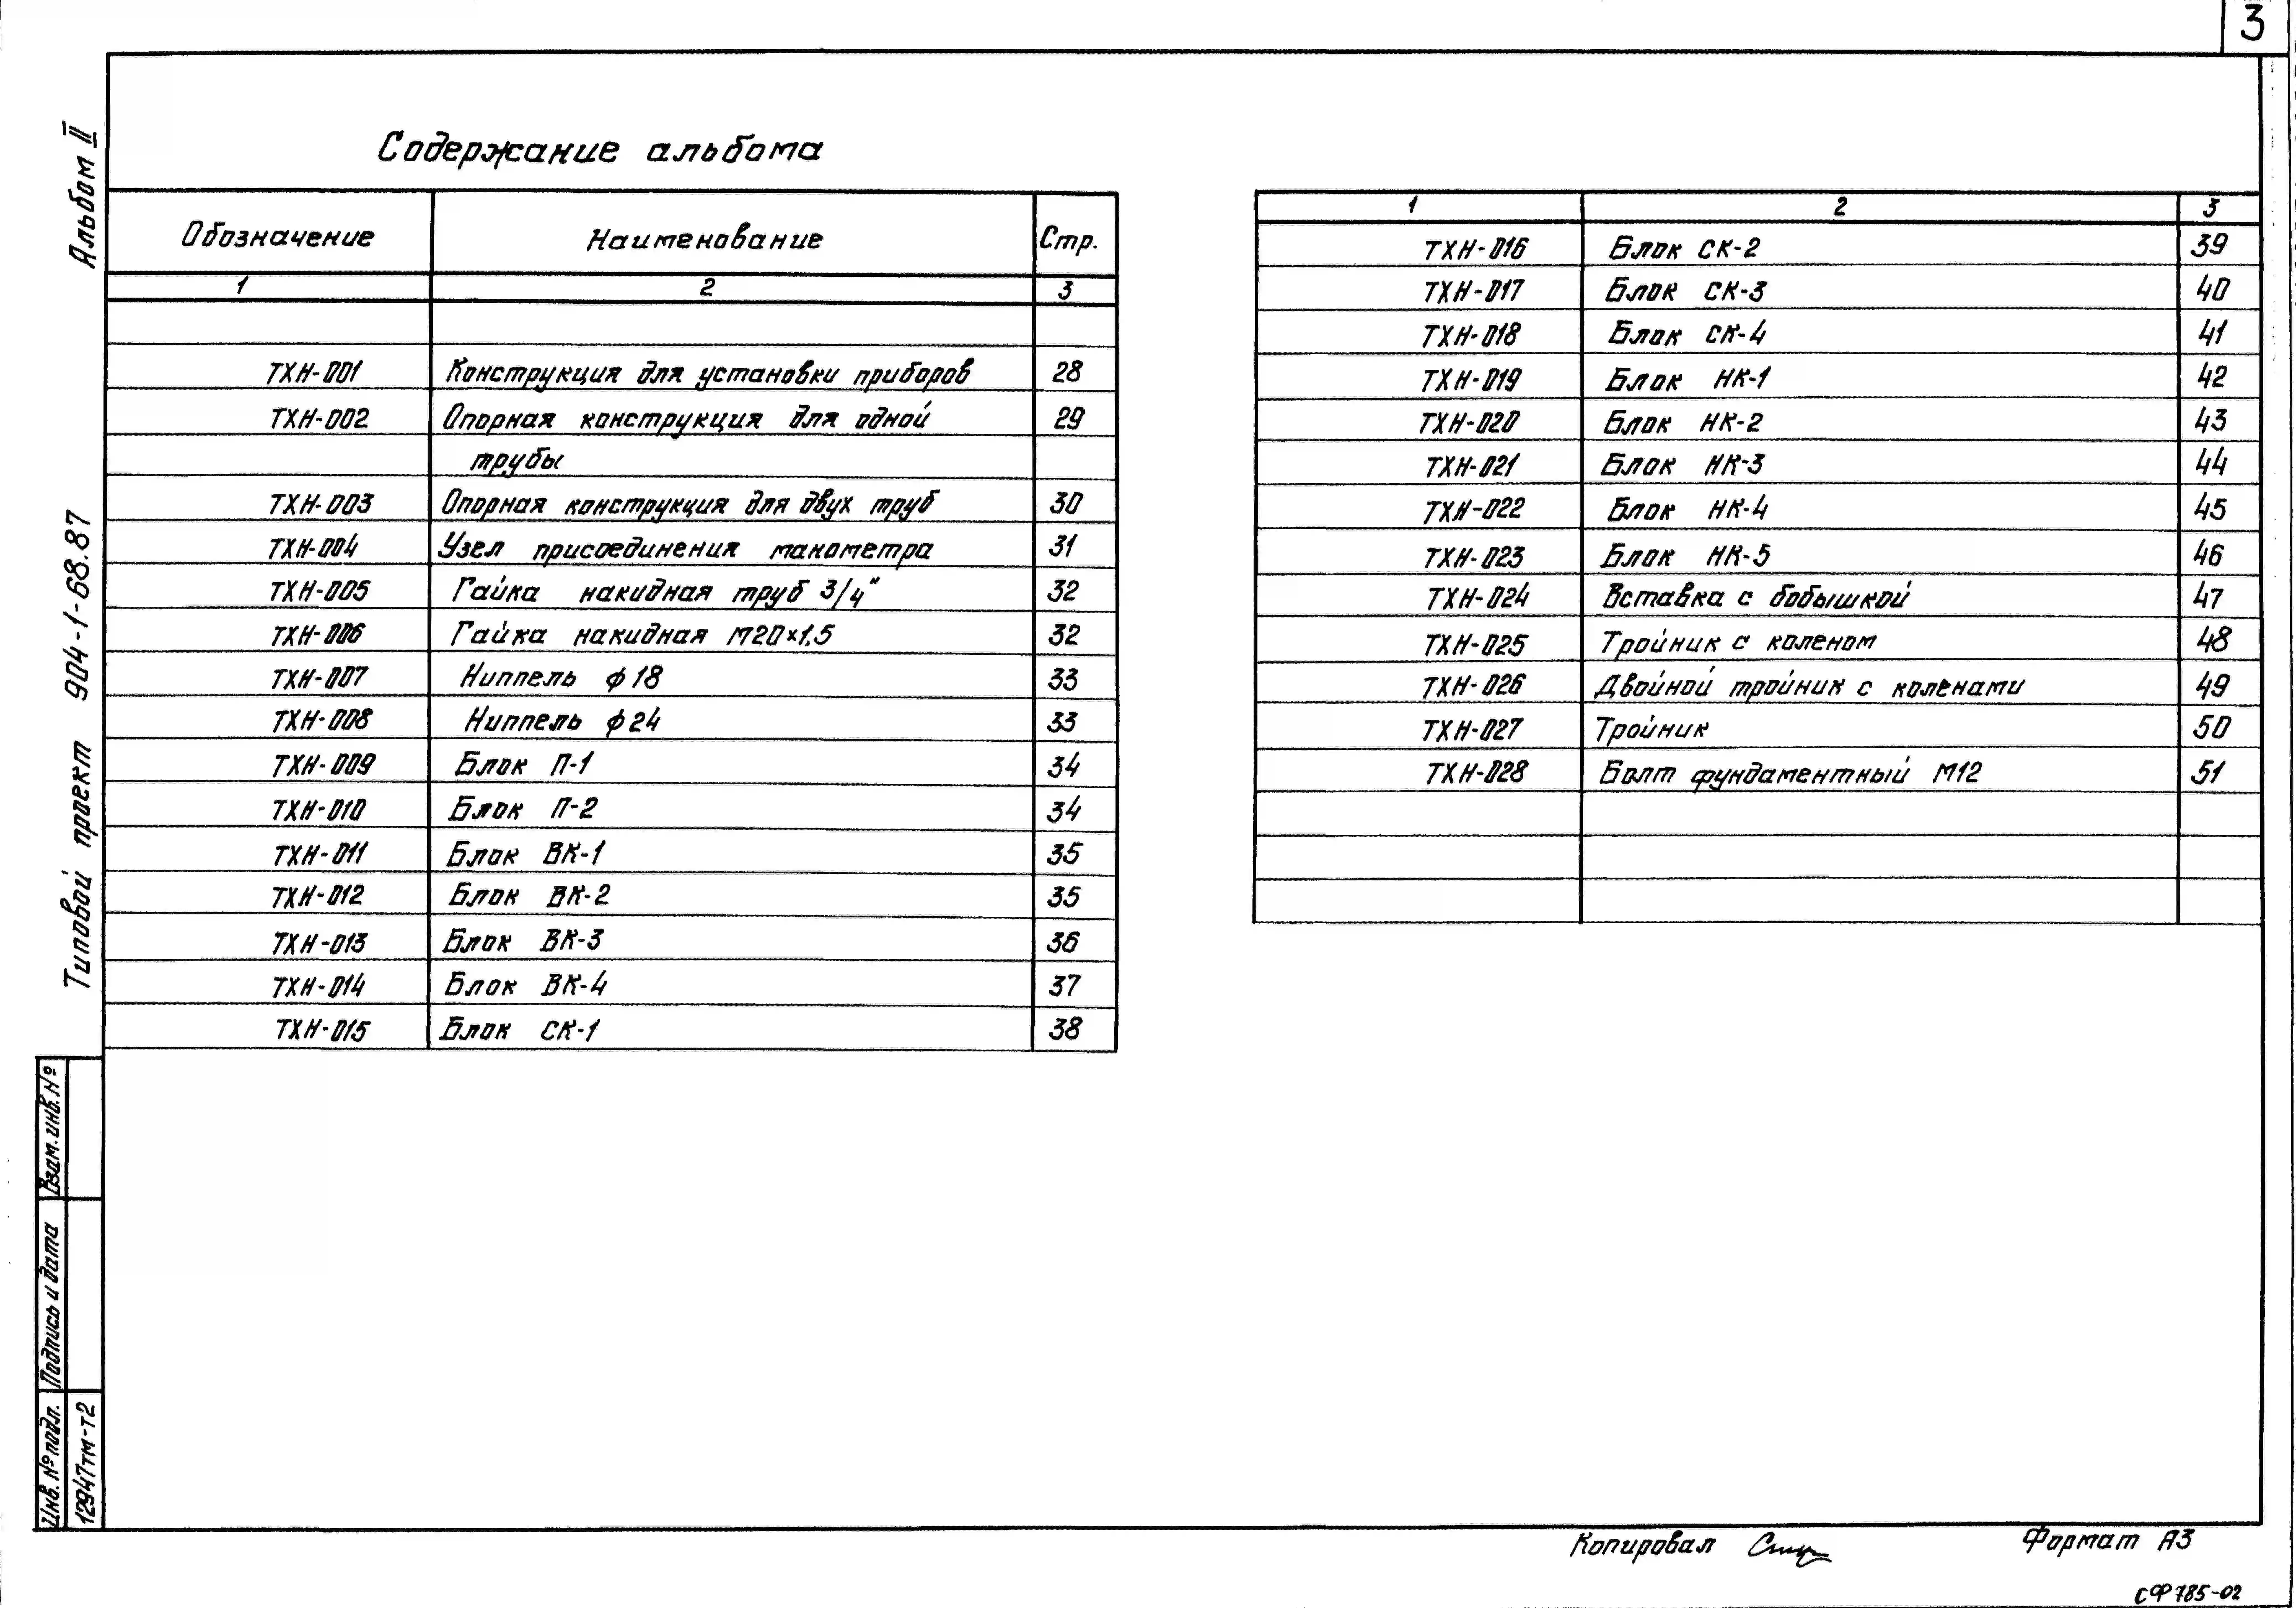 3
Альбом II
Типовой проект 904-1-68.87
Содержание альбома
Обозначение Наименование Стр.
1 2 3
ТХН-001 Конструкция для установки приборов 28
ТХН-002 Опорная конструкция для одной 29
трубы
ТХН-003 Опорная конструкция для двух труб 30
ТХН-004 Узел присоединения манометра 31
ТХН-005 Гайка накидная труб 3/4" 32
ТХН-006 Гайка накидная М20×1,5 32
ТХН-007 Ниппель ф18 33
ТХН-008 Ниппель ф24 33
ТХН-009 Блок П-1 34
ТХН-010 Блок П-2 34
ТХН-011 Блок ВК-1 35
ТХН-012 Блок ВК-2 35
ТХН-013 Блок ВК-3 36
ТХН-014 Блок ВК-4 37
ТХН-015 Блок СК-1 38
1 2 3
ТХН-016 Блок СК-2 39
ТХН-017 Блок СК-3 40
ТХН-018 Блок СК-4 41
ТХН-019 Блок НК-1 42
ТХН-020 Блок НК-2 43
ТХН-021 Блок НК-3 44
ТХН-022 Блок НК-4 45
ТХН-023 Блок НК-5 46
ТХН-024 Вставка с бобышкой 47
ТХН-025 Тройник с коленом 48
ТХН-026 Двойной тройник с коленами 49
ТХН-027 Тройник 50
ТХН-028 Болт фундаментный М12 51
Взам. инв. №
Подпись и дата
Инв. № подл.
12947тм-т2
Копировал
Формат А3
СФ 785-02